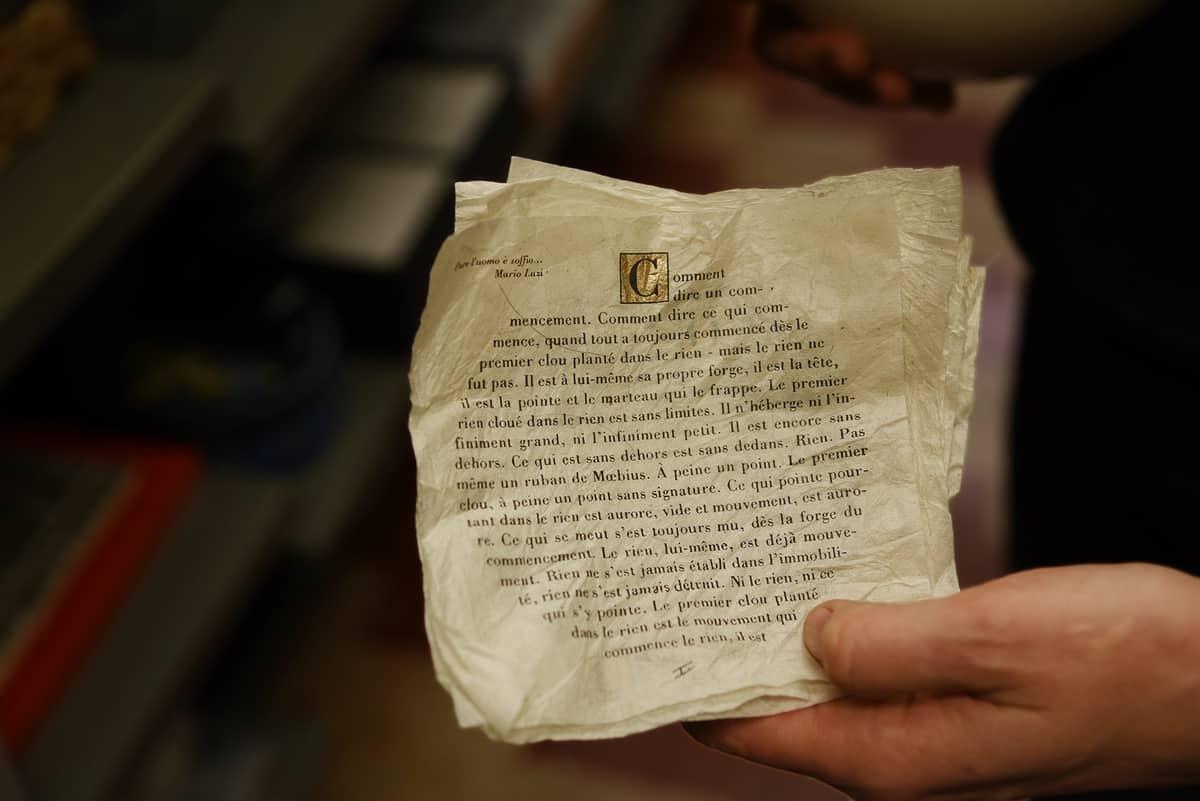 Pure l'uomo è soffio...
Mario Luzi
Comment
dire un com-
mencement. Comment dire ce qui com-
mence, quand tout a toujours commencé dès le
premier clou planté dans le rien - mais le rien ne
fut pas. Il est à lui-même sa propre forge, il est la tête,
il est la pointe et le marteau qui le frappe. Le premier
rien cloué dans le rien est sans limites. Il n'héberge ni l'in-
finiment grand, ni l'infiniment petit. Il est encore sans
dehors. Ce qui est sans dehors est sans dedans. Rien. Pas
même un ruban de Mœbius. À peine un point. Le premier
clou, à peine un point sans signature. Ce qui pointe pour-
tant dans le rien est aurore, vide et mouvement, est auro-
re. Ce qui se meut s'est toujours mu, dès la forge du
commencement. Le rien, lui-même, est déjà mouve-
ment. Rien ne s'est jamais établi dans l'immobili-
té, rien ne s'est jamais détruit. Ni le rien, ni ce
qui s'y pointe. Le premier clou planté
dans le rien est le mouvement qui
commence le rien, il est
I